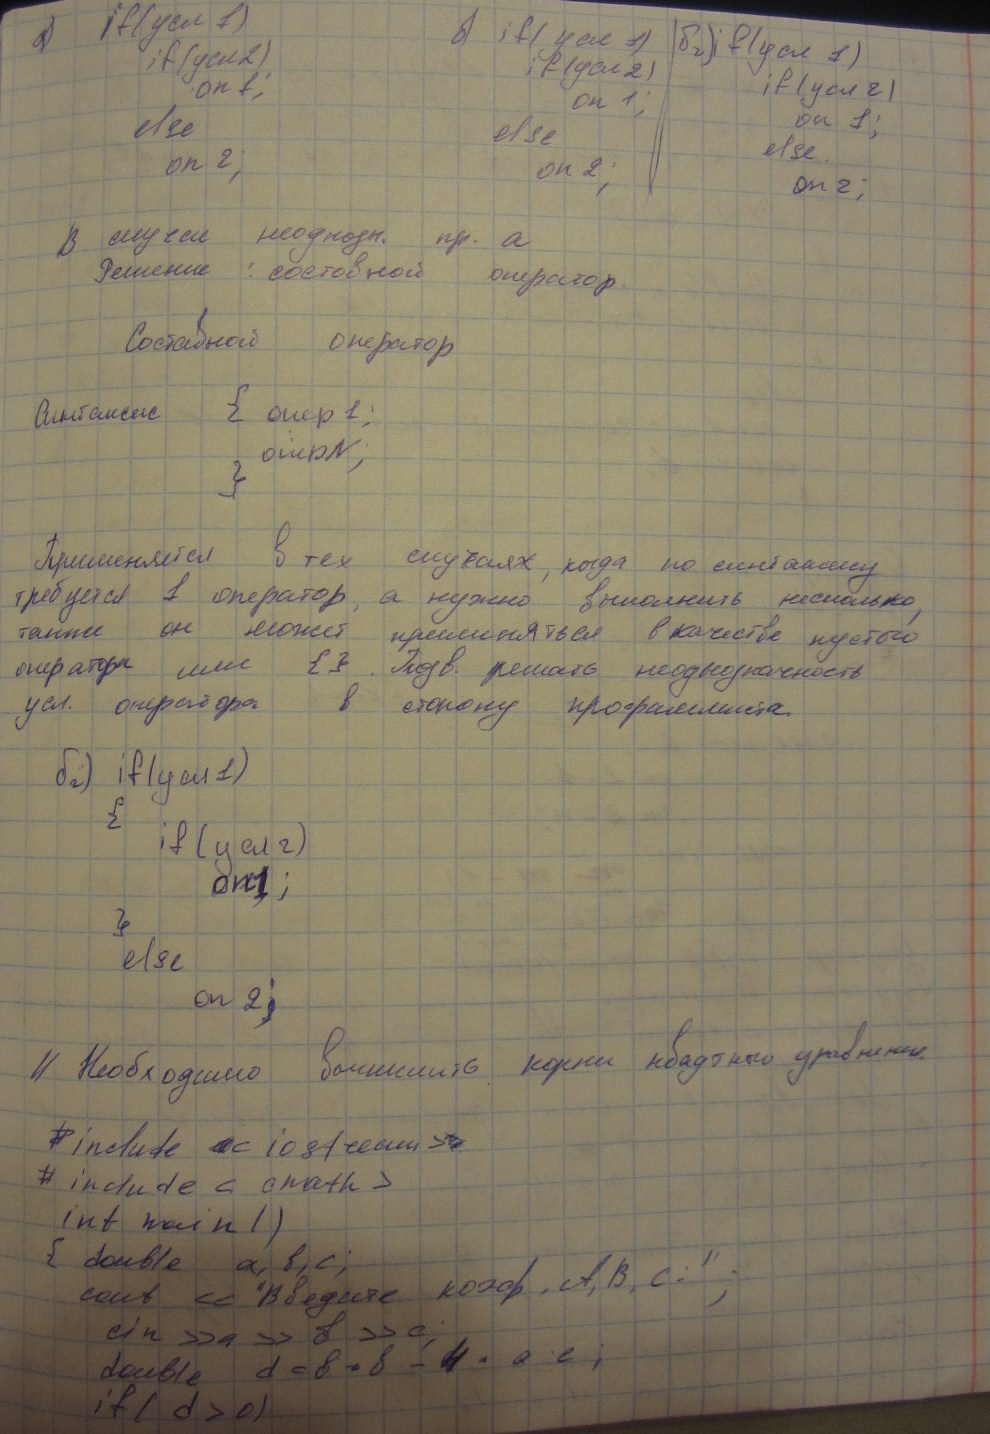 а) if(усл 1)
if(усл2)
оп 1;
else
оп 2;
б) if(усл 1)
if(усл2)
оп 1;
else
оп 2;
б2) if(усл 1)
if(усл 2)
оп 1;
else.
оп 2;
В случае неоднозн. пр. а
Решение : составной оператор.
Составной оператор
Синтаксис { опер 1;
оперN;
}
Применяется в тех случаях, когда по синтаксису
требуется 1 оператор, а нужно выполнить несколько,
также он может применяться в качестве пустого
оператора или {}. Подв. решать неоднозначность
усл. оператора в сторону программиста.
б2) if(усл 1)
{
if(усл 2)
оп1;
}
else
оп 2;
// Необходимо вычислить корни квадтного уравнения.
#include <iostream>
#include < cmath >
int main()
{ double a, b, c;
cout << "Введите коэф. A, B, C:";
cin >>a >> b >> c;
double d = b * b - 4 * a * c ;
if( d > 0)